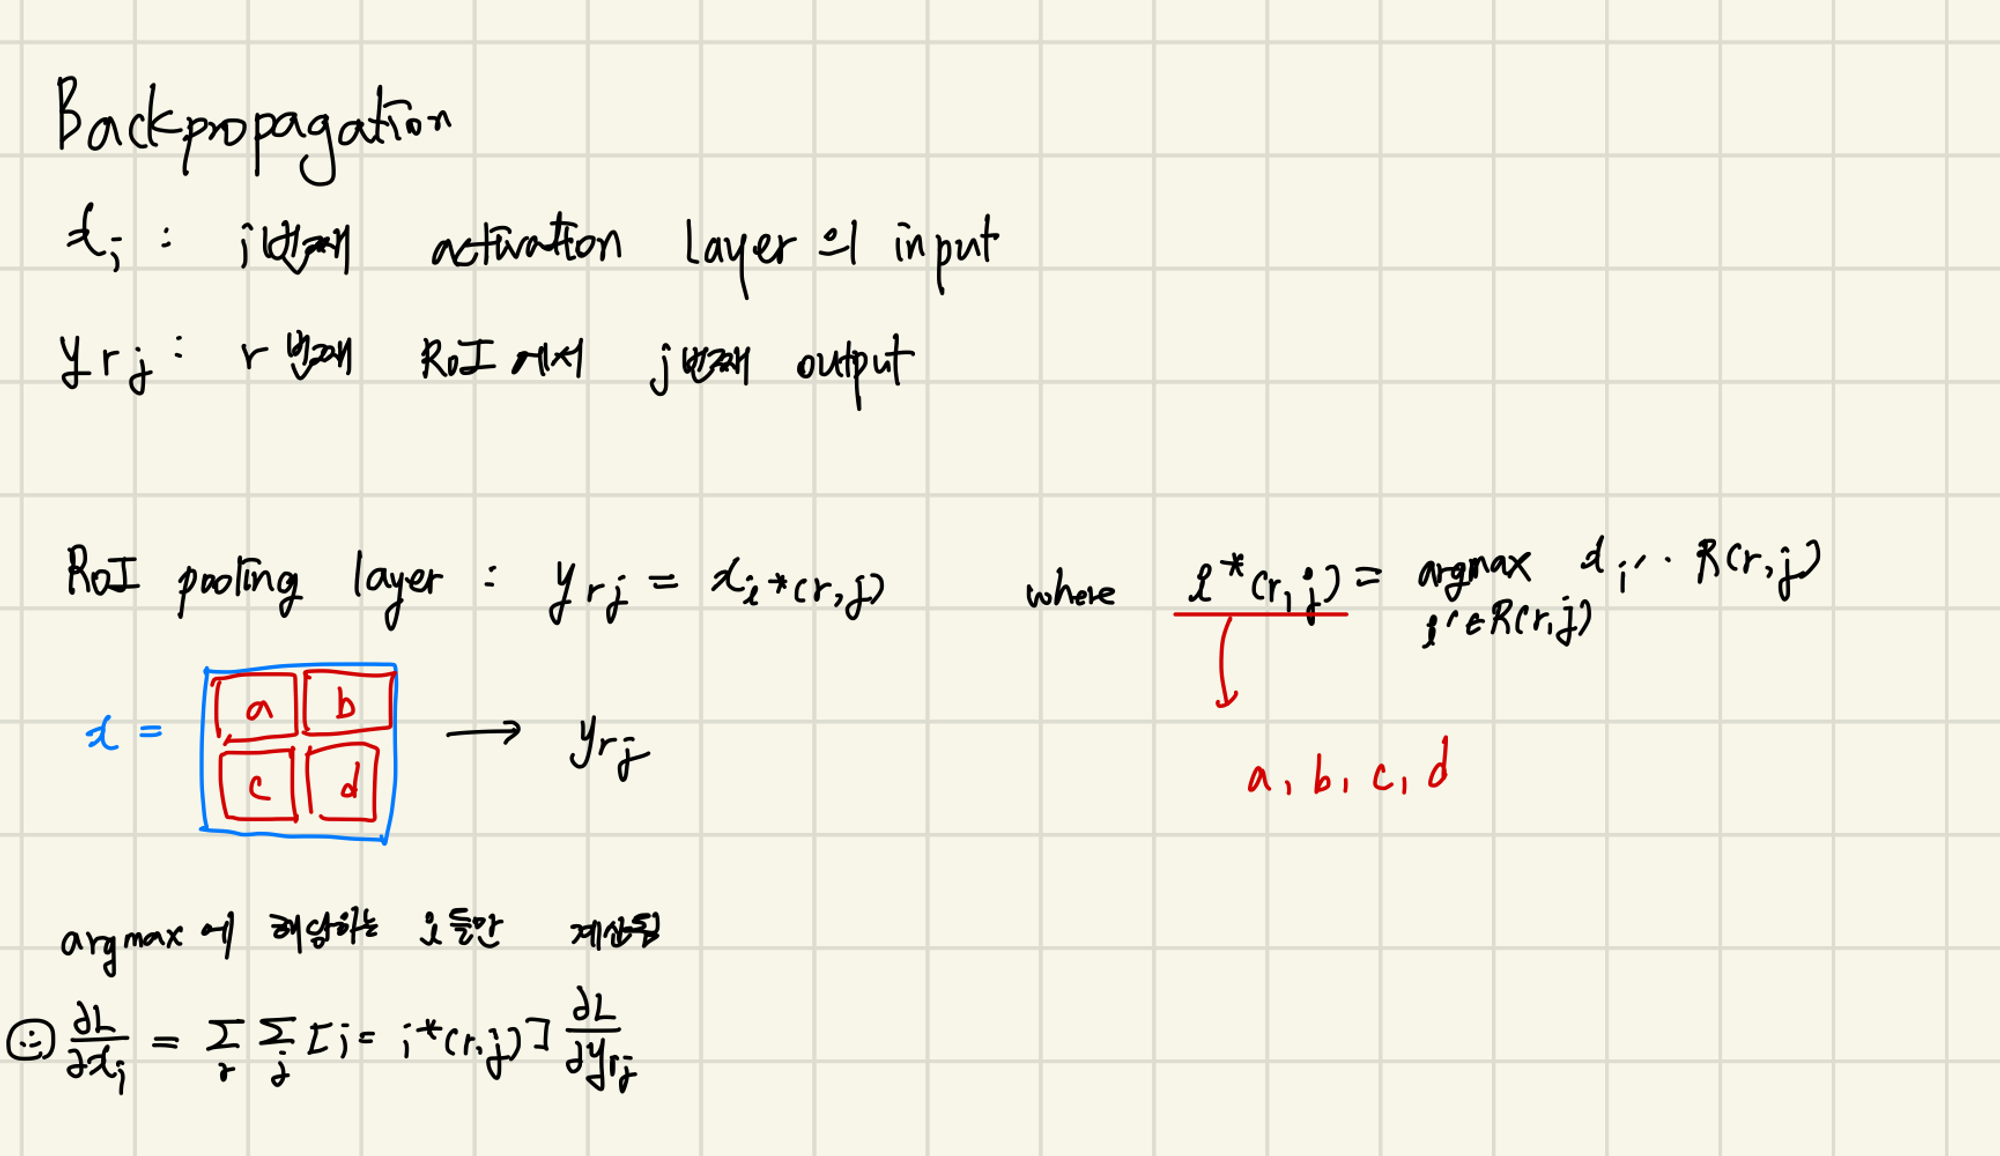 Backpropagation
x_i : i번째 activation layer의 input
y_rj : r번째 RoI에서 j번째 output
RoI pooling layer : y_rj = x_i*(r,j) where i*(r,j) = argmax_{i'∈R(r,j)} x_i' · R(r,j)
x = a b c d → y_rj
a, b, c, d
argmax에 해당하는 i들만 계산됨
∂L/∂x_i = Σ_r Σ_j [i = i*(r,j)] ∂L/∂y_rj